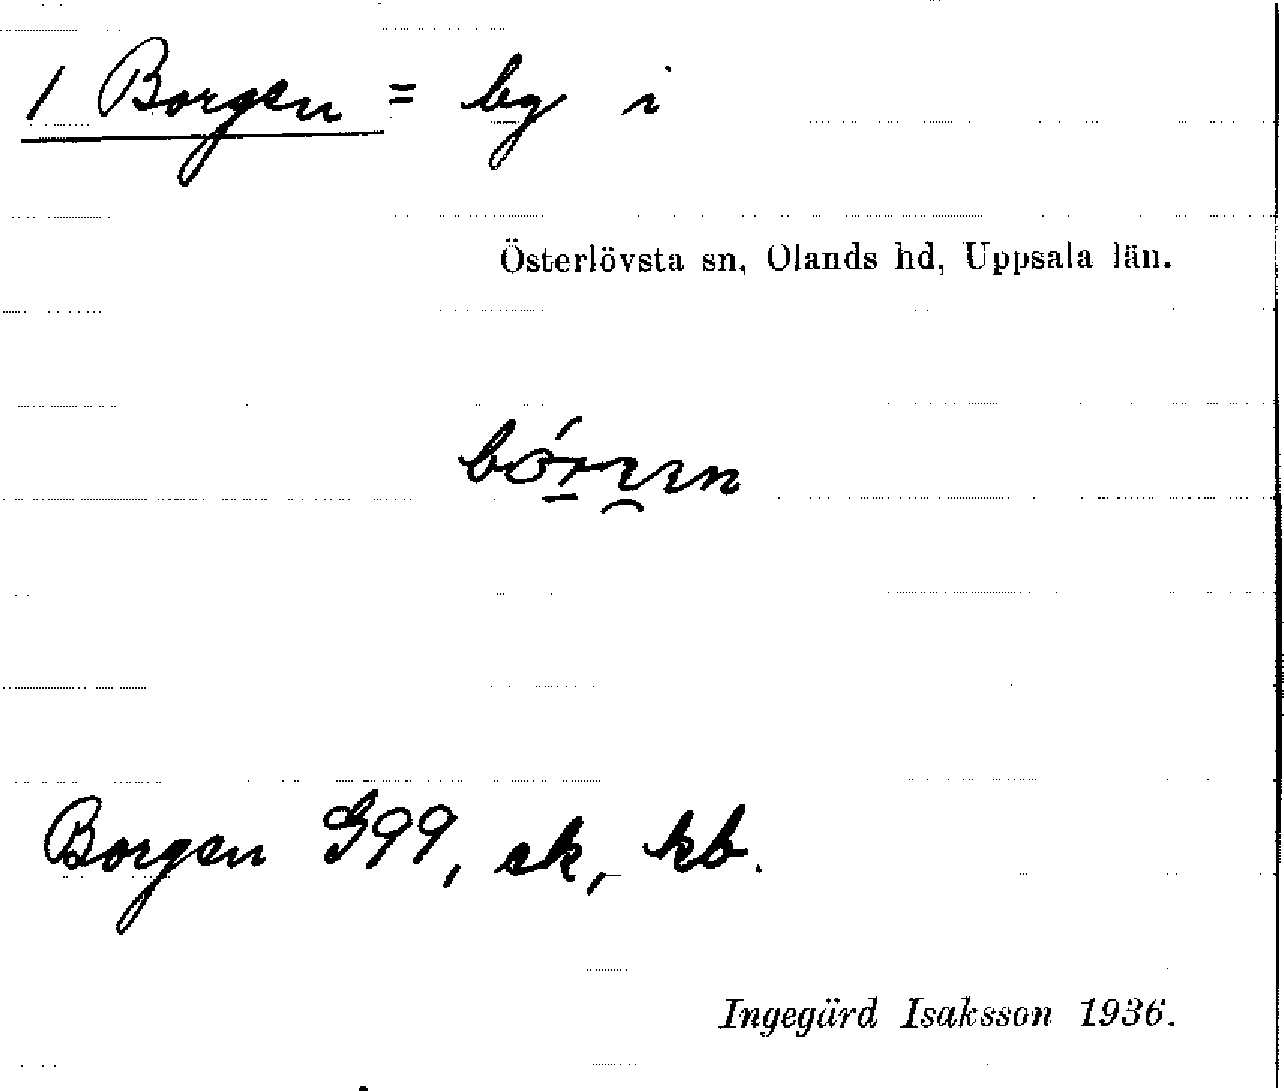 1 Borgen = by i
Österlövsta sn, Olands hd, Uppsala län.
Borgen G99, ek, kb.
Ingegärd Isaksson 1936.